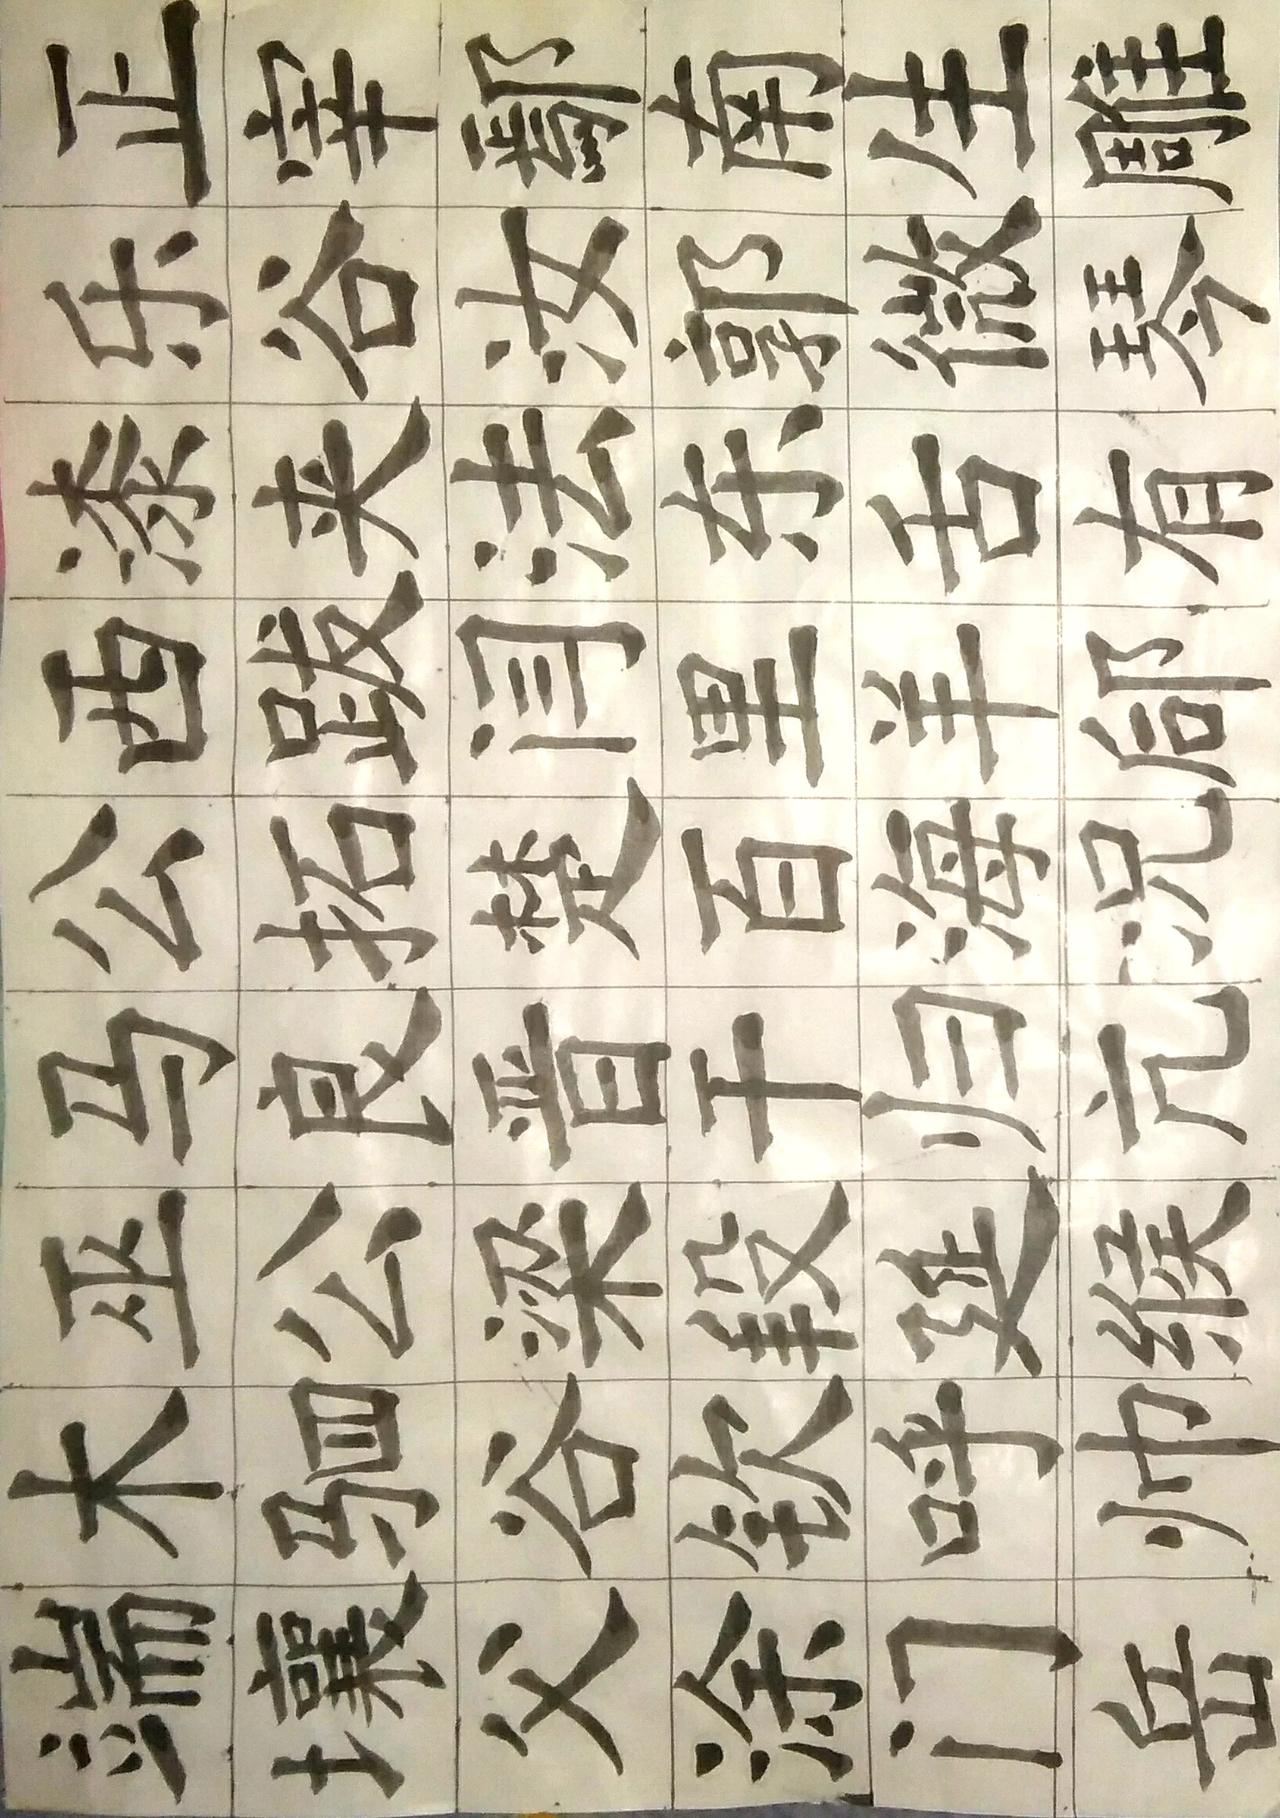 端木巫马公西漆乐正
壤驷公良拓跋夹谷宰
父谷梁晋楚闫法汝鄢
涂钦段干百里东郭南
门呼延归海羊舌微生
岳帅缑亢况郈有琴雕